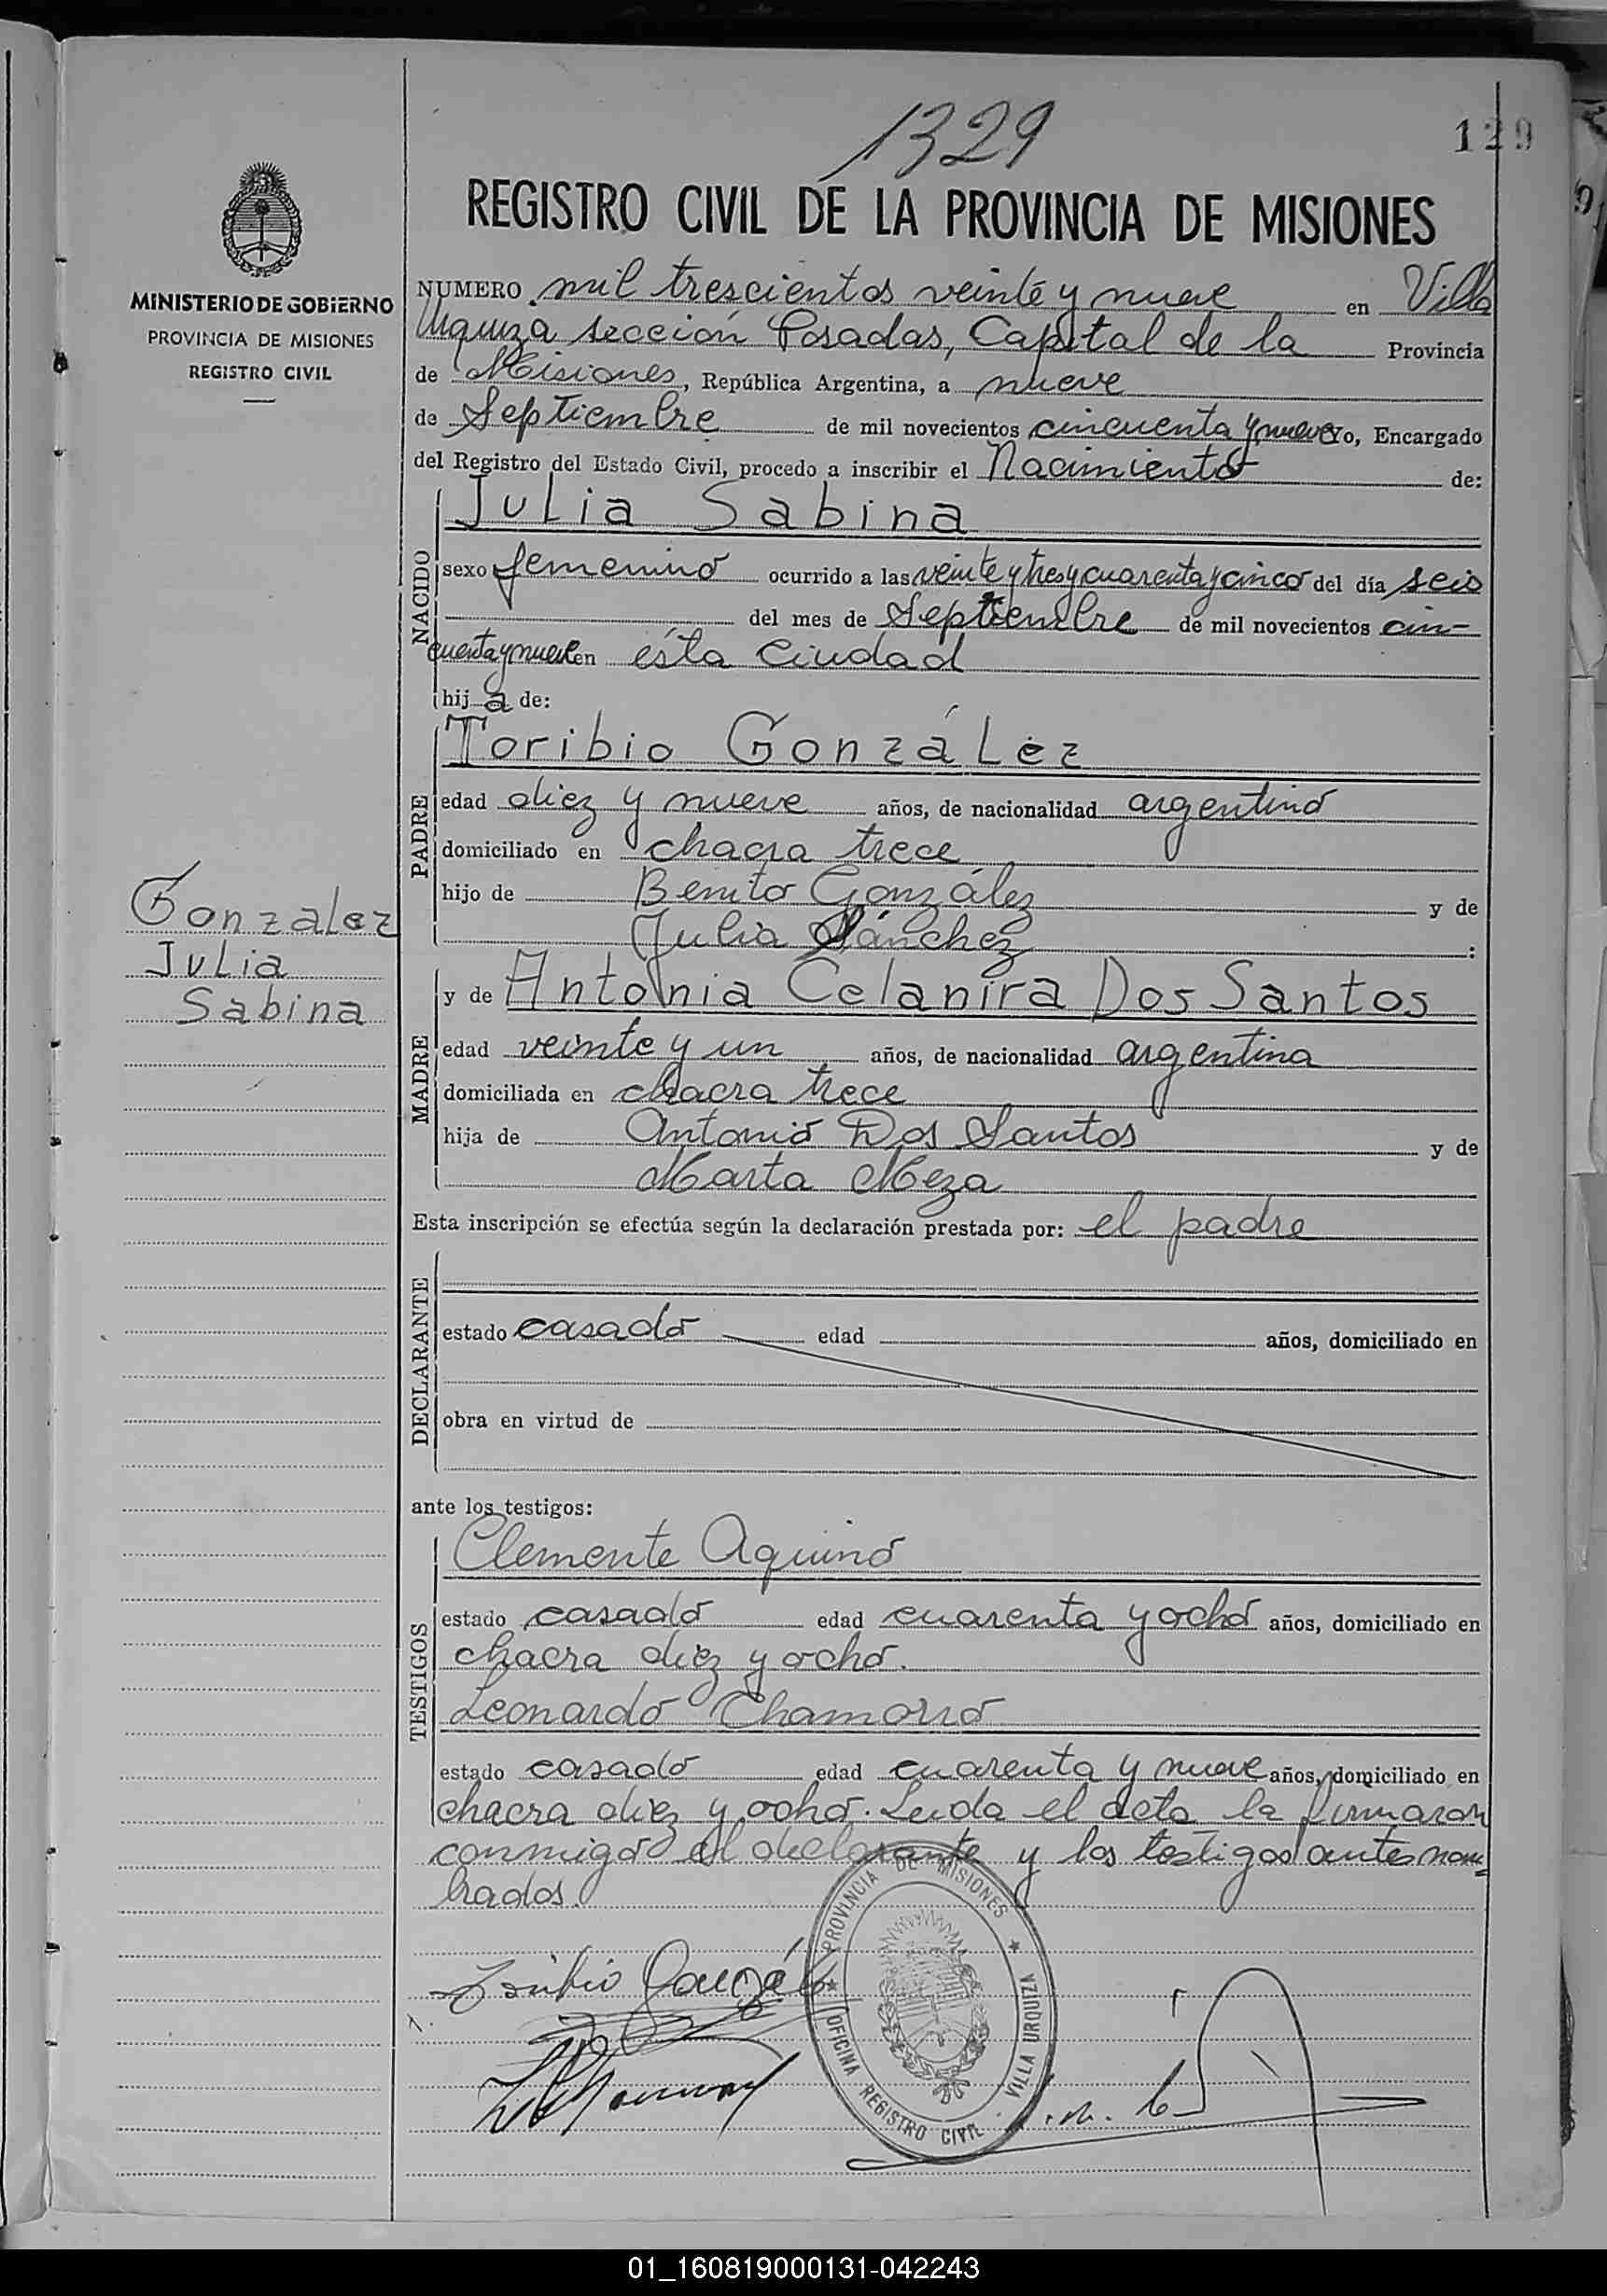 1329
129
REGISTRO CIVIL DE LA PROVINCIA DE MISIONES
MINISTERIO DE GOBIERNO
PROVINCIA DE MISIONES
REGISTRO CIVIL
NUMERO mil trescientos veinte y nueve en Villa
Urquiza sección Posadas, Capital de la Provincia
de Misiones, República Argentina, a nueve
de Septiembre de mil novecientos cincuenta y nueve yo, Encargado
del Registro del Estado Civil, procedo a inscribir el Nacimiento de:
NACIDO
Julia Sabina
sexo femenino ocurrido a las veinte y tres y cuarenta y cinco del día seis
del mes de Septiembre de mil novecientos cin-
cuenta y nueve en ésta Ciudad
hij a de:
PADRE
Toribio González
edad diez y nueve años, de nacionalidad argentino
domiciliado en chacra trece
hijo de Benito González y de
Julia Sánchez :
Gonzalez
Julia
Sabina
MADRE
y de Antonia Celanira Dos Santos
edad veinte y un años, de nacionalidad argentina
domiciliada en chacra trece
hija de Antonio Dos Santos y de
Marta Meza
Esta inscripción se efectúa según la declaración prestada por: el padre
DECLARANTE
estado casado edad años, domiciliado en
obra en virtud de
ante los testigos:
TESTIGOS
Clemente Aquino
estado casado edad cuarenta y ocho años, domiciliado en
chacra diez y ocho.
Leonardo Chamorro
estado casado edad cuarenta y nueve años, domiciliado en
chacra diez y ocho. Leida el acta la firmaron
conmigo el declarante y los testigos antes nom=
brados.
Toribio González
PROVINCIA DE MISIONES
OFICINA REGISTRO CIVIL · VILLA URQUIZA
01_160819000131-042243